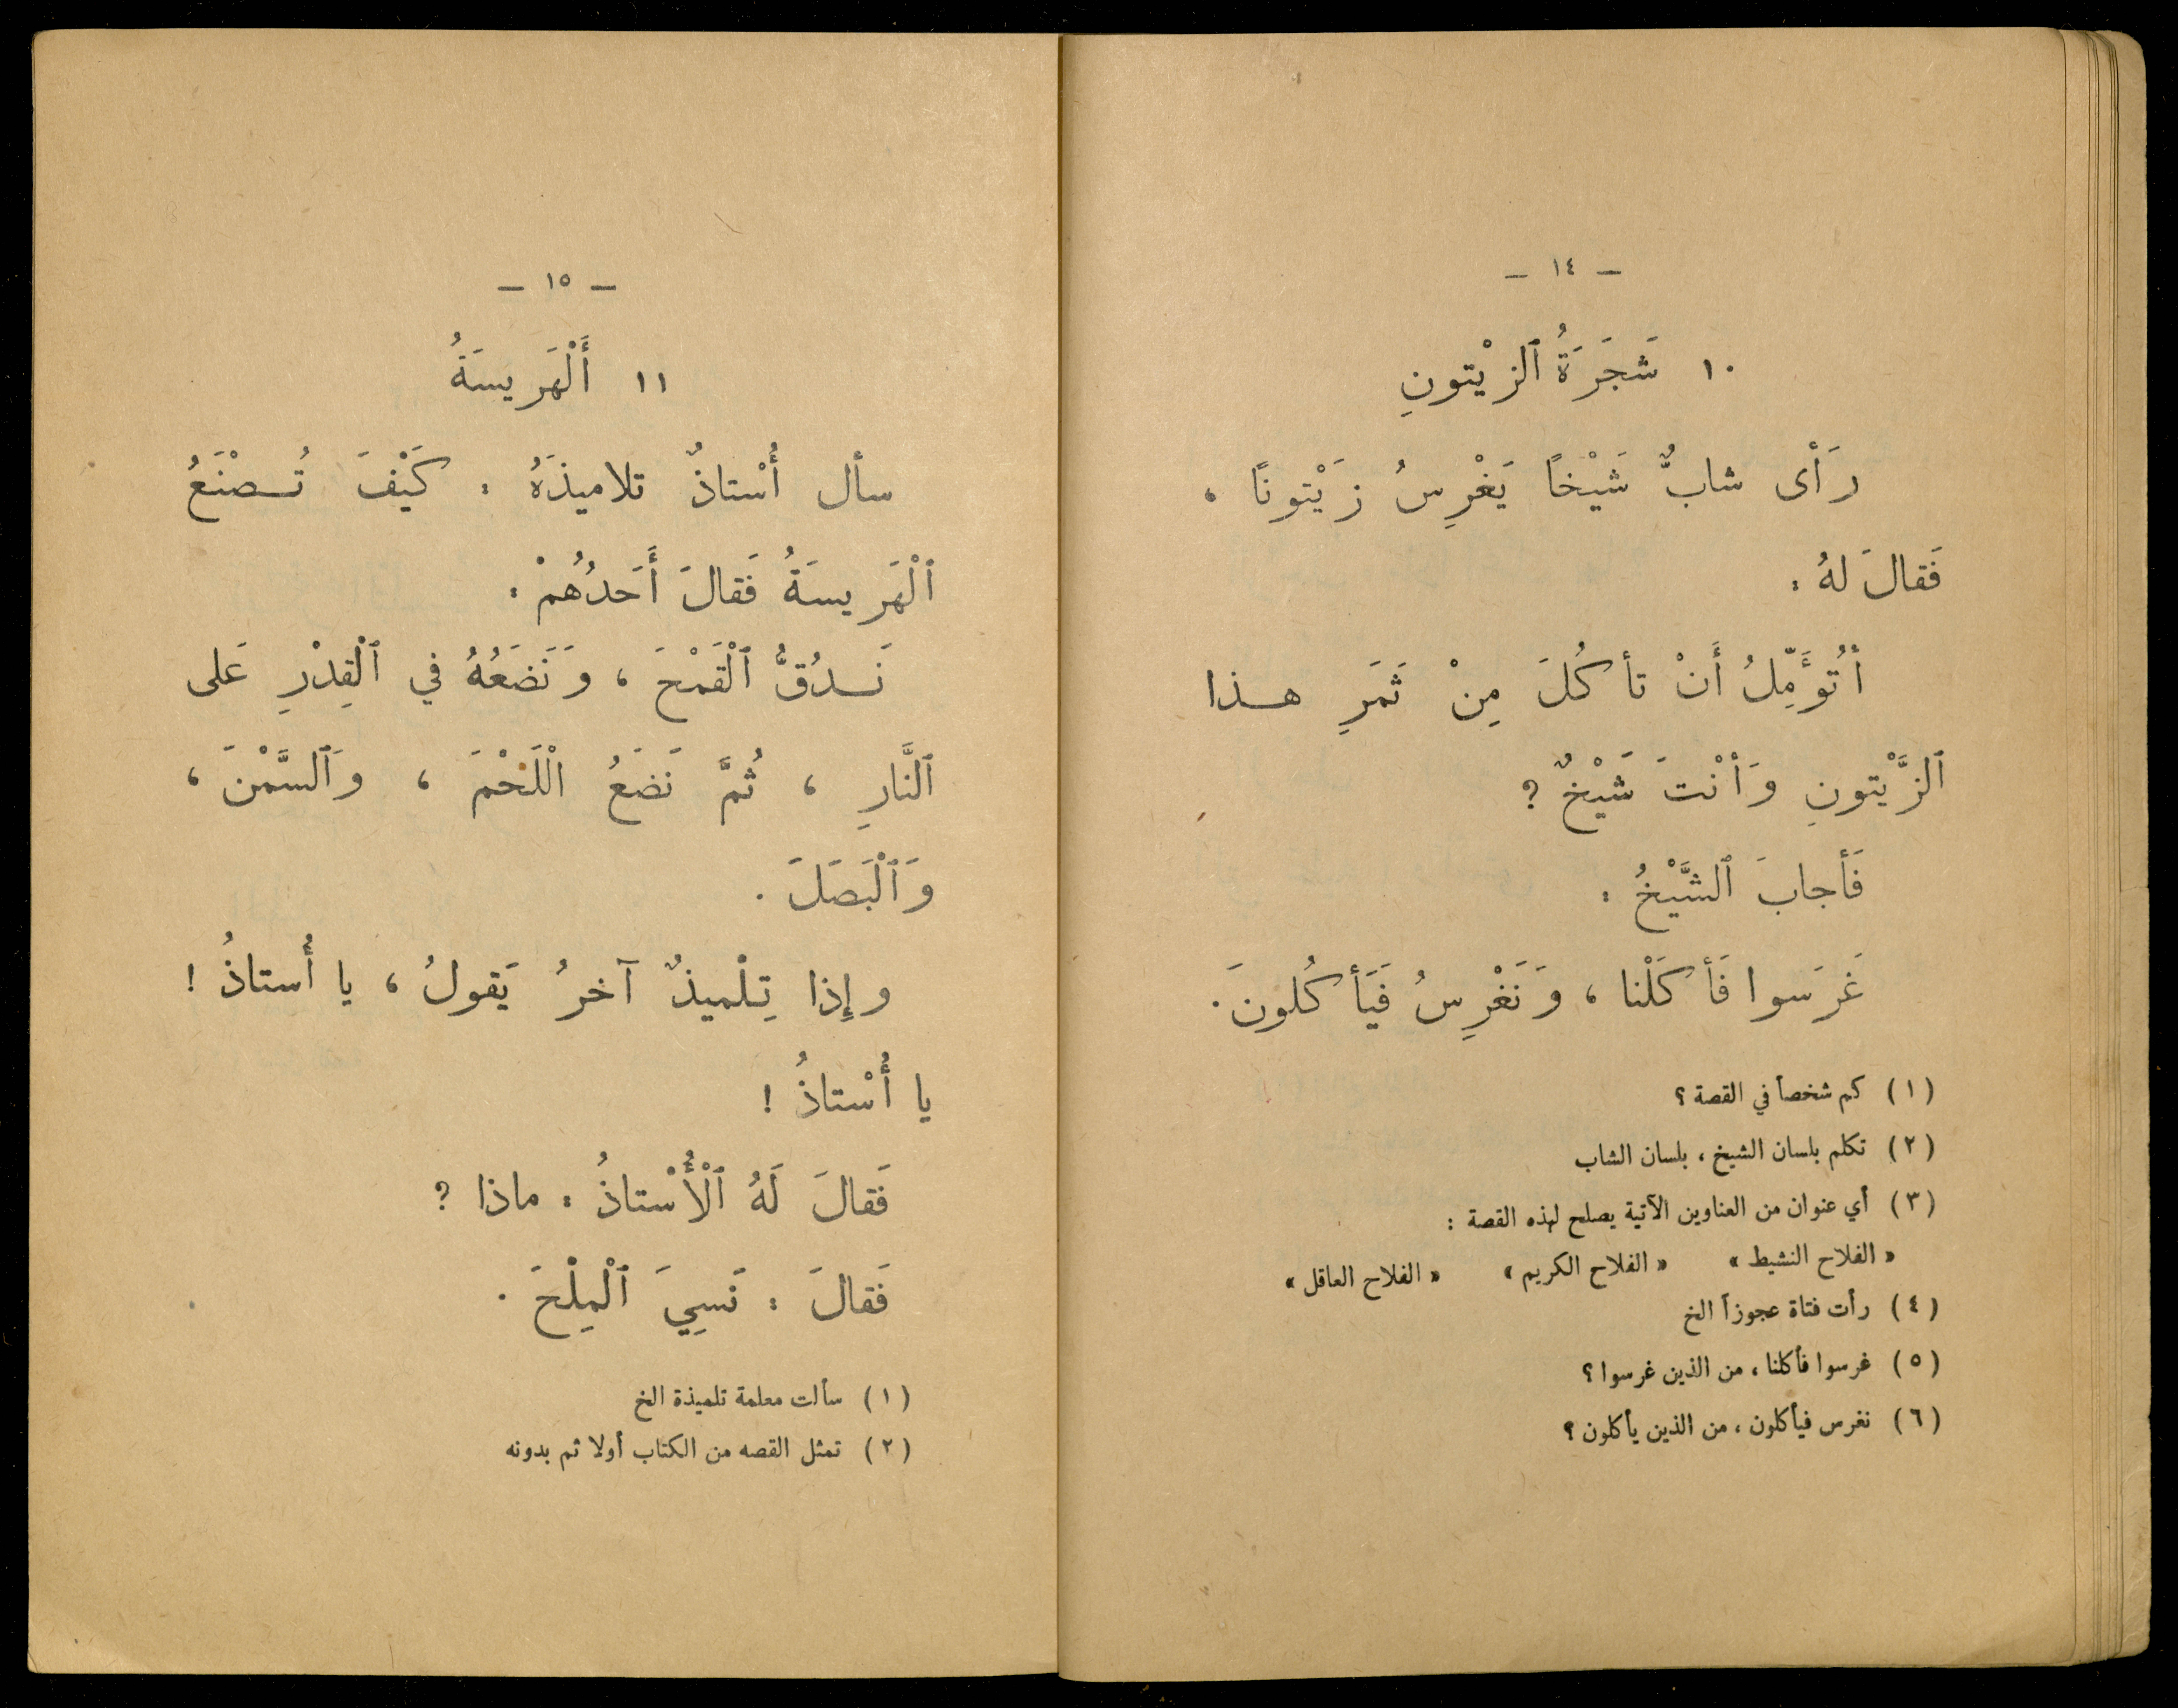 – ١٤ –
١٠ شَجَرَةُ ٱلزيْتونِ
رَأْى شابٌّ شَيْخاً يَغْرِسُ زَيْتوناً ،
فَقالَ لهُ :
أتُؤَمِّلُ أَنْ تأكُلَ مِنْ ثَمَرِ هـذا
ٱلزَّيْتونِ وَأنْتَ شَيْخٌ ؟
فَأجابَ ٱلشَّيْخُ :
غَرَسوا فَأكَلْنا ، وَنَغْرِسُ فَيَأكُلونَ .
(١) كم شخصاً في القصة ؟
(٢) تكلم بلسان الشيخ ، بلسان الشاب
(٣) أي عنوان من العناوين الآتية يصلح لهذه القصة :
« الفلاح النشيط » « الفلاح الكريم » « الفلاح العاقل »
(٤) رأت فتاة عجوزاً الخ
(٥) غرسوا فأكلنا ، من الذين غرسوا ؟
(٦) نغرس فيأكلون ، من الذين يأكلون ؟
– ١٥ –
١١ أَلْهَريسَةُ
سأل أُسْتاذٌ تلاميذَهُ : كَيْفَ تُـصْنَعُ
ٱلْهَريسَةُ فَقالَ أَحَدُهُمْ :
نَـدُقُّ ٱلْقَمْحَ ، وَنَضَعُهُ في ٱلْقِدْرِ عَلى
ٱلنَّارِ ، ثُمَّ نَضَعُ الْلَحْمَ ، وَٱلسَّمْنَ ،
وَٱلْبَصَلَ .
وإِذا تِلْميذٌ آخرُ يَقولُ ، يا أُستاذُ !
يا أُسْتاذُ !
فَقالَ لَهُ ٱلْأُسْتاذُ : ماذا ؟
فَقالَ : نَسِيَ ٱلْمِلْحَ .
(١) سألت معلمة تلميذة الخ
(٢) تمثل القصه من الكتاب أولا ثم بدونه